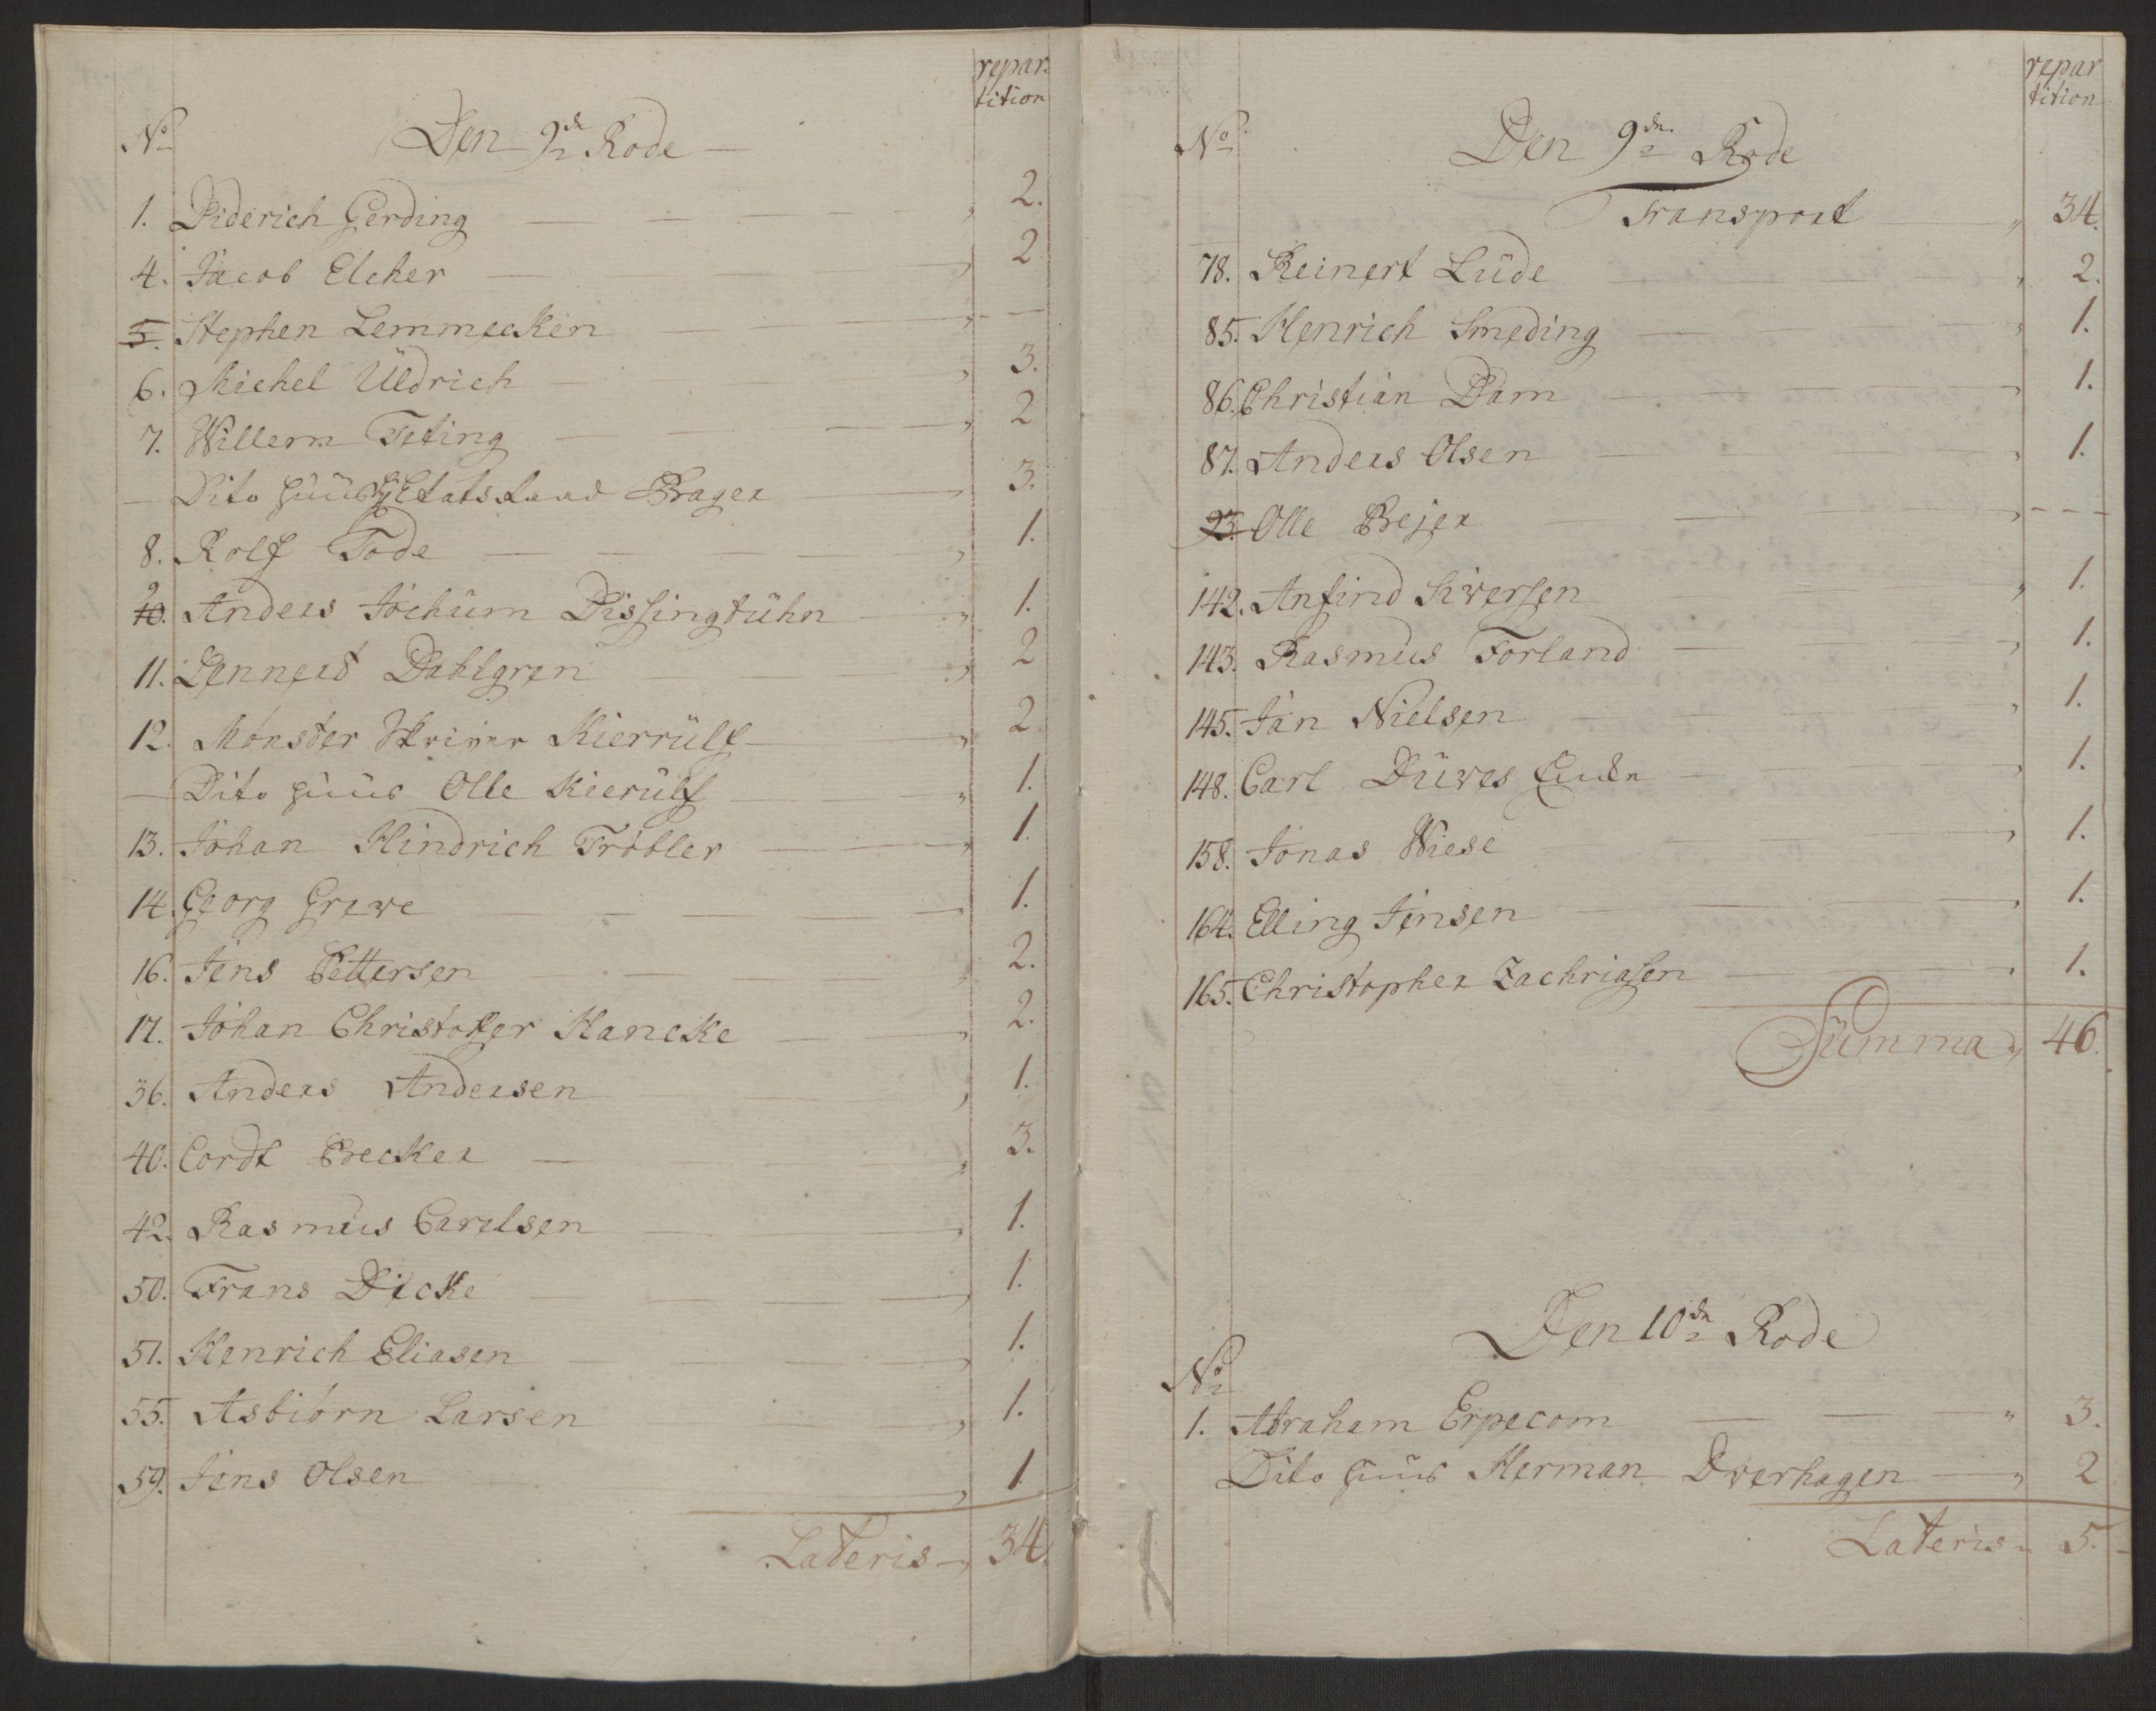 repar
tition
No
Den 9de Rode
1. Diderich Gerding 2.
4. Jacob Elcher 2
5. Stephen Lemmecken
6. Michel Üldrich 3.
7. Willem Teting 2
Dito Huus Etatsraad Brager 3.
8. Rolf Tode 1.
9
10. Anders Jochüm Dissingtühn 1.
11. Lennerd Dahlgren 2
12. Mønster Skriver Kierrülf 2
Dito Huus Olle Kierülf 1.
13. Johan Hindrich Trøbler 1.
14. Georg Grewe 1.
16. Jens Pettersen 2.
17. Johan Christoffer Hancke 2.
36. Anders Andersen 1.
40. Cordt Becker 3.
42. Rasmus Carelsen 1.
50. Frans Dicke 1.
51. Henrich Eliasen 1.
55. Asbiørn Larsen 1.
59. Jens Olsen 1
Lateris 34.
repar
tition
No
Den 9de Rode
Transport 34.
78. Reinert Lüde 2.
85. Henrich Smeding 1.
86. Christian Dam 1.
87. Anders Olsen 1.
93. Olle Bejer
142. Anfind Siversen 1.
143. Rasmus Forland 1.
145. Jan Nielsen 1.
148. Carl Düwes Enke 1.
158. Jonas Wiese 1.
164. Elling Jensen 1.
165. Christopher Zachriasen 1.
Summa 46.
Den 10de Rode
No
1. Abraham Erpecom 3.
Dito Huus Herman Dverhagen 2
Lateris 5.